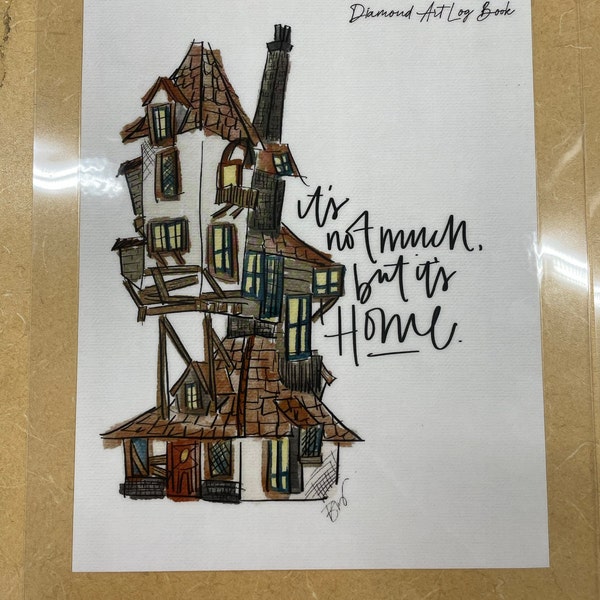 Diamond Art Log Book
it's
not much,
but it's
Home.